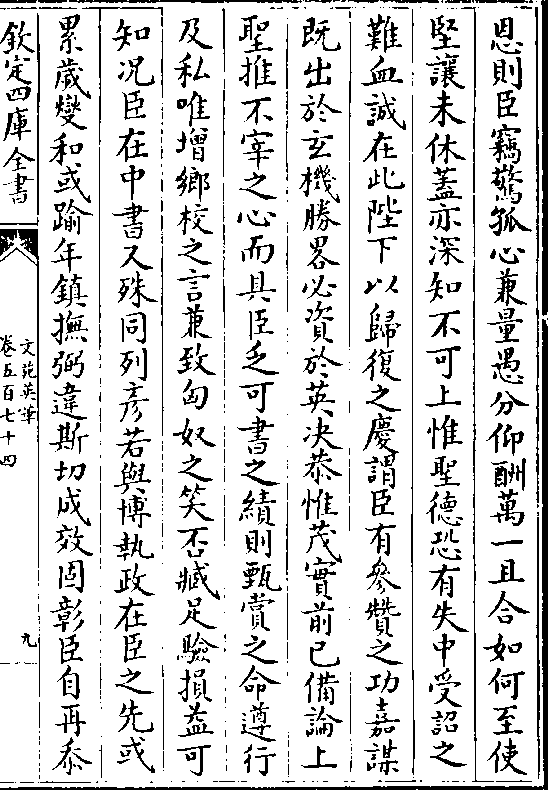 恩則臣竊驚孤心兼量愚分仰酬萬一且合如何至使
堅讓未休蓋亦深知不可上惟聖德恐有失中受詔之
難血誠在此陛下以歸復之慶謂臣有參贊之功嘉謀
既出於玄機勝畧必資於英決恭惟茂實前已備論上
聖推不宰之心而具臣乏可書之績則甄賞之命遵行
及私唯增鄉校之言兼致匈奴之笑否臧足驗損益可
知况臣在中書又殊同列彥若與博執政在臣之先或
累歲燮和或踰年鎮撫弼違斯切成效固彰臣自再忝
欽定四庫全書
文苑英華
卷五百七十四
九